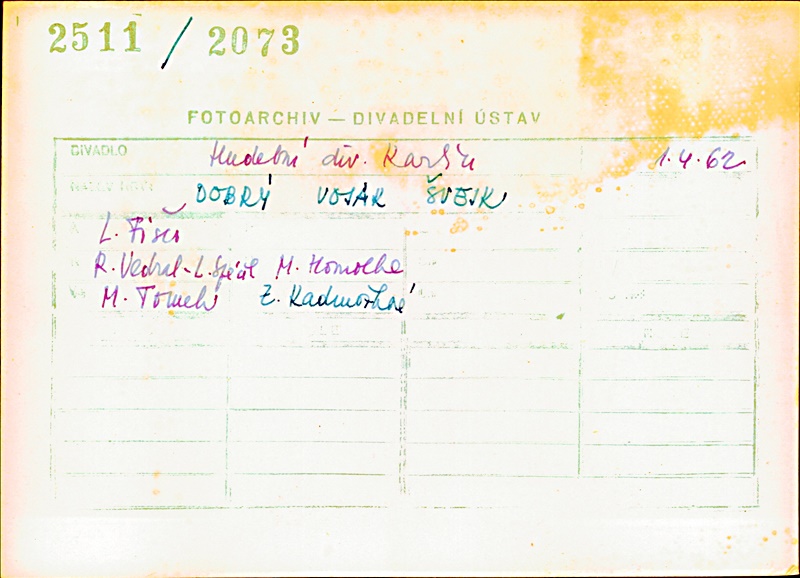 2511 / 2073
FOTOARCHIV — DIVADELNÍ ÚSTAV
DIVADLO Hudební div. Karlín 1.4.62
DOBRÝ VOJÁK ŠVEJK
L. Fišer
R. Vedral - L. Spáčil M. Homolka
M. Tomek Z. Kadrnožková